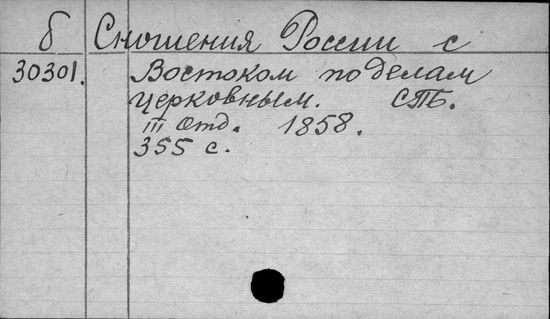 б Сношения России с
30301. Востоком по делам
церковным. СПБ.
III Отд. 1858.
355 с.